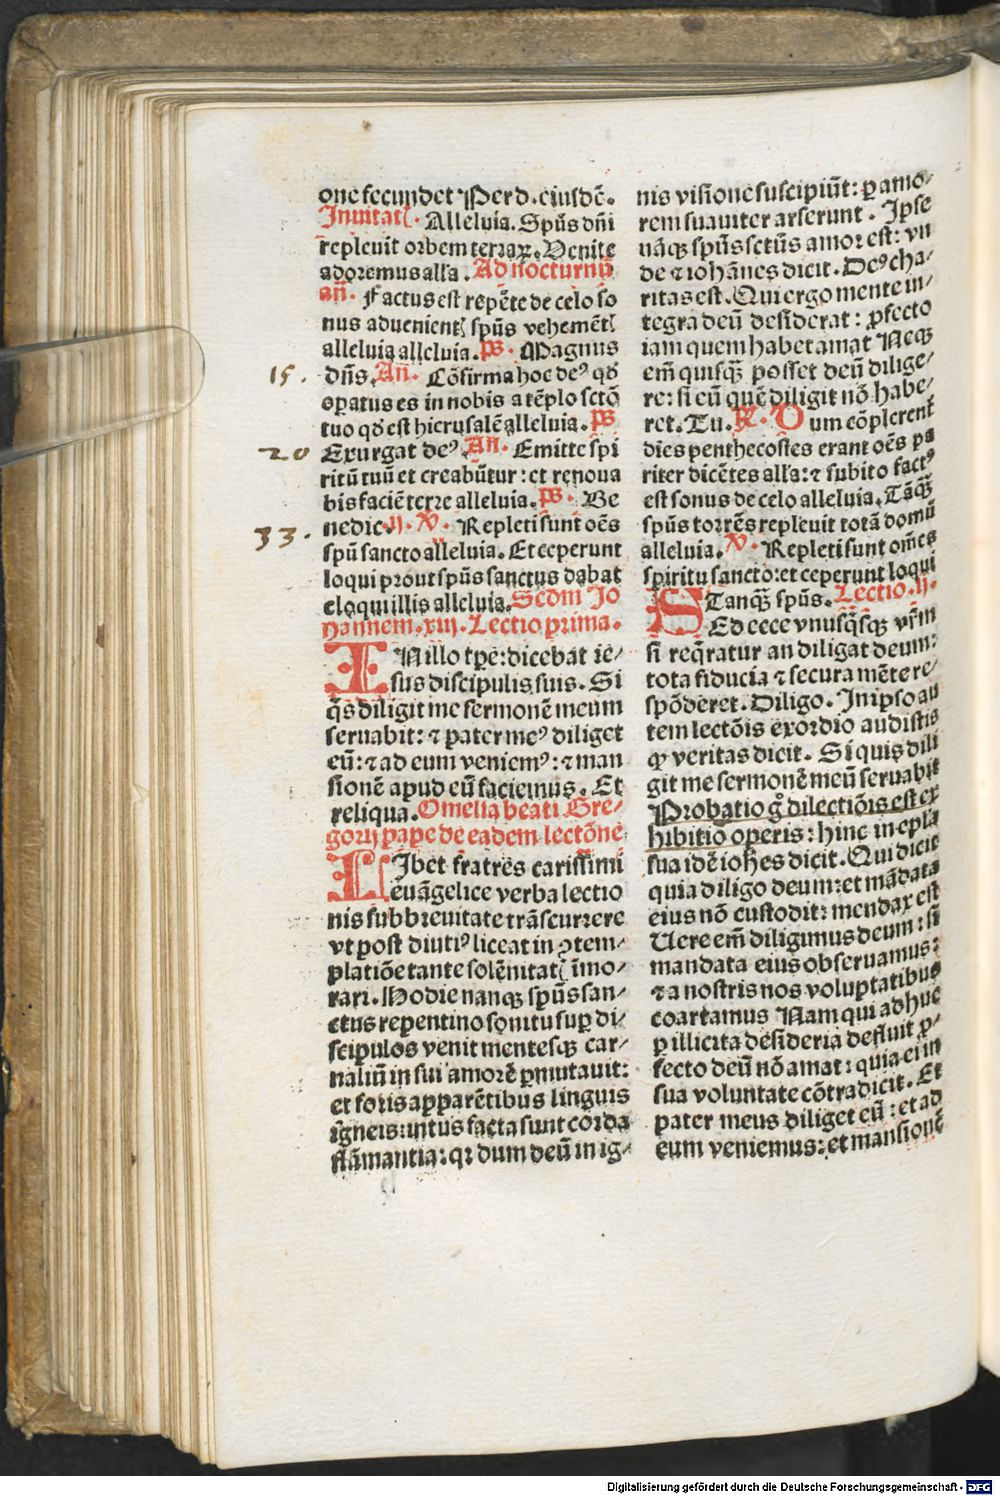 one fecundet Per d. eiusdē.
Inuitatꝭ. Alleluia. Spūs dñi
repleuit orbem terraꝝ. Venite
adoremus alla. Ad nocturnū
añ. Factus est repēte de celo so
nus aduenientꝭ spūs vehemētꝭ
alleluia alleluia. ps. Magnus
15. dñs. Añ. Cōfirma hoc deꝰ qd̄
oꝑatus es in nobis a tēplo sctō
tuo qd̄ est hierusalē alleluia. ps
20 Exurgat deꝰ. Añ. Emitte spi
ritū tuū et creabūtur: et renoua
bis faciē terre alleluia. ps. Be
33. nedic. ij. ℣. Repleti sunt oēs
spū sancto alleluia. Et ceperunt
loqui prout spūs sanctus dabat
eloqui illis alleluia. Scdm Jo
hannem. xiiij. Lectio prima.
IN illo tꝑe: dicebat ie⸗
sus discipulis suis. Si
q̄s diligit me sermonē meum
seruabit: ⁊ pater meꝰ diliget
eū: ⁊ ad eum veniemꝰ: ⁊ man
sionē apud eū faciemus. Et
reliqua. Omelia beati Gre⸗
gorij pape de eadem lectōne
LIbet fratres carissimi
euāgelice verba lectio
nis sub breuitate trāscurrere
vt post diutiꝰ liceat in ꝯtem⸗
platiōe tante solēnitatꝭ īmo⸗
rari. Hodie nanqꝫ spūs san⸗
ctus repentino sonitu suꝑ di⸗
scipulos venit mentesqꝫ car⸗
naliū in sui amorē ꝑmutauit:
et foris apparētibus linguis
igneis: intus facta sunt corda
flāmantia: qꝛ dum deū in ig⸗
nis visione suscipiūt: ꝑ amo⸗
rem suauiter arserunt. Ipse
nāqꝫ spūs sctūs amor est: vn
de ⁊ iohānes dicit. Deꝰ cha⸗
ritas est. Qui ergo mente in⸗
tegra deū desiderat: ꝓfecto
iam quem habet amat Neqꝫ
em̄ quisqꝫ̄ posset deū dilige⸗
re: si eū quē diligit nō habe⸗
ret. Tu. ℟. Dum cōplerent
dies penthecostes erant oēs pa
riter dicētes alla: ⁊ subito factꝰ
est sonus de celo alleluia. Tāqꝫ̄
spūs torrēs repleuit totā domū
alleluia. ℣. Repleti sunt om̄es
spiritu sancto: et ceperunt loqui
Tanqꝫ̄ spūs. Lectio. ij.
SEd ecce vnusq̄sqꝫ vr̄m
si reqͥratur an diligat deum:
tota fiducia ⁊ secura mēte re⸗
spōderet. Diligo. In ipso au
tem lectōis exordio audistis
ꝙ veritas dicit. Si quis dili
git me sermonē meū seruabit
Probatio gͦ dilectiōis est ex
hibitio operis: hinc in epla
sua idē iohes dicit. Qui dicit
quia diligo deum: et mādata
eius nō custodit: mendax est
Uere em̄ diligimus deum: si
mandata eius obseruamus:
⁊ a nostris nos voluptatibus
coartamus Nam qui adhuc
ꝑ illicita desideria defluit ꝓ⸗
fecto deū nō amat: quia ei in
sua voluntate cōtradicit. Et
pater meus diliget eū: et ad
eum veniemus: et mansionē
Digitalisierung gefördert durch die Deutsche Forschungsgemeinschaft - DFG